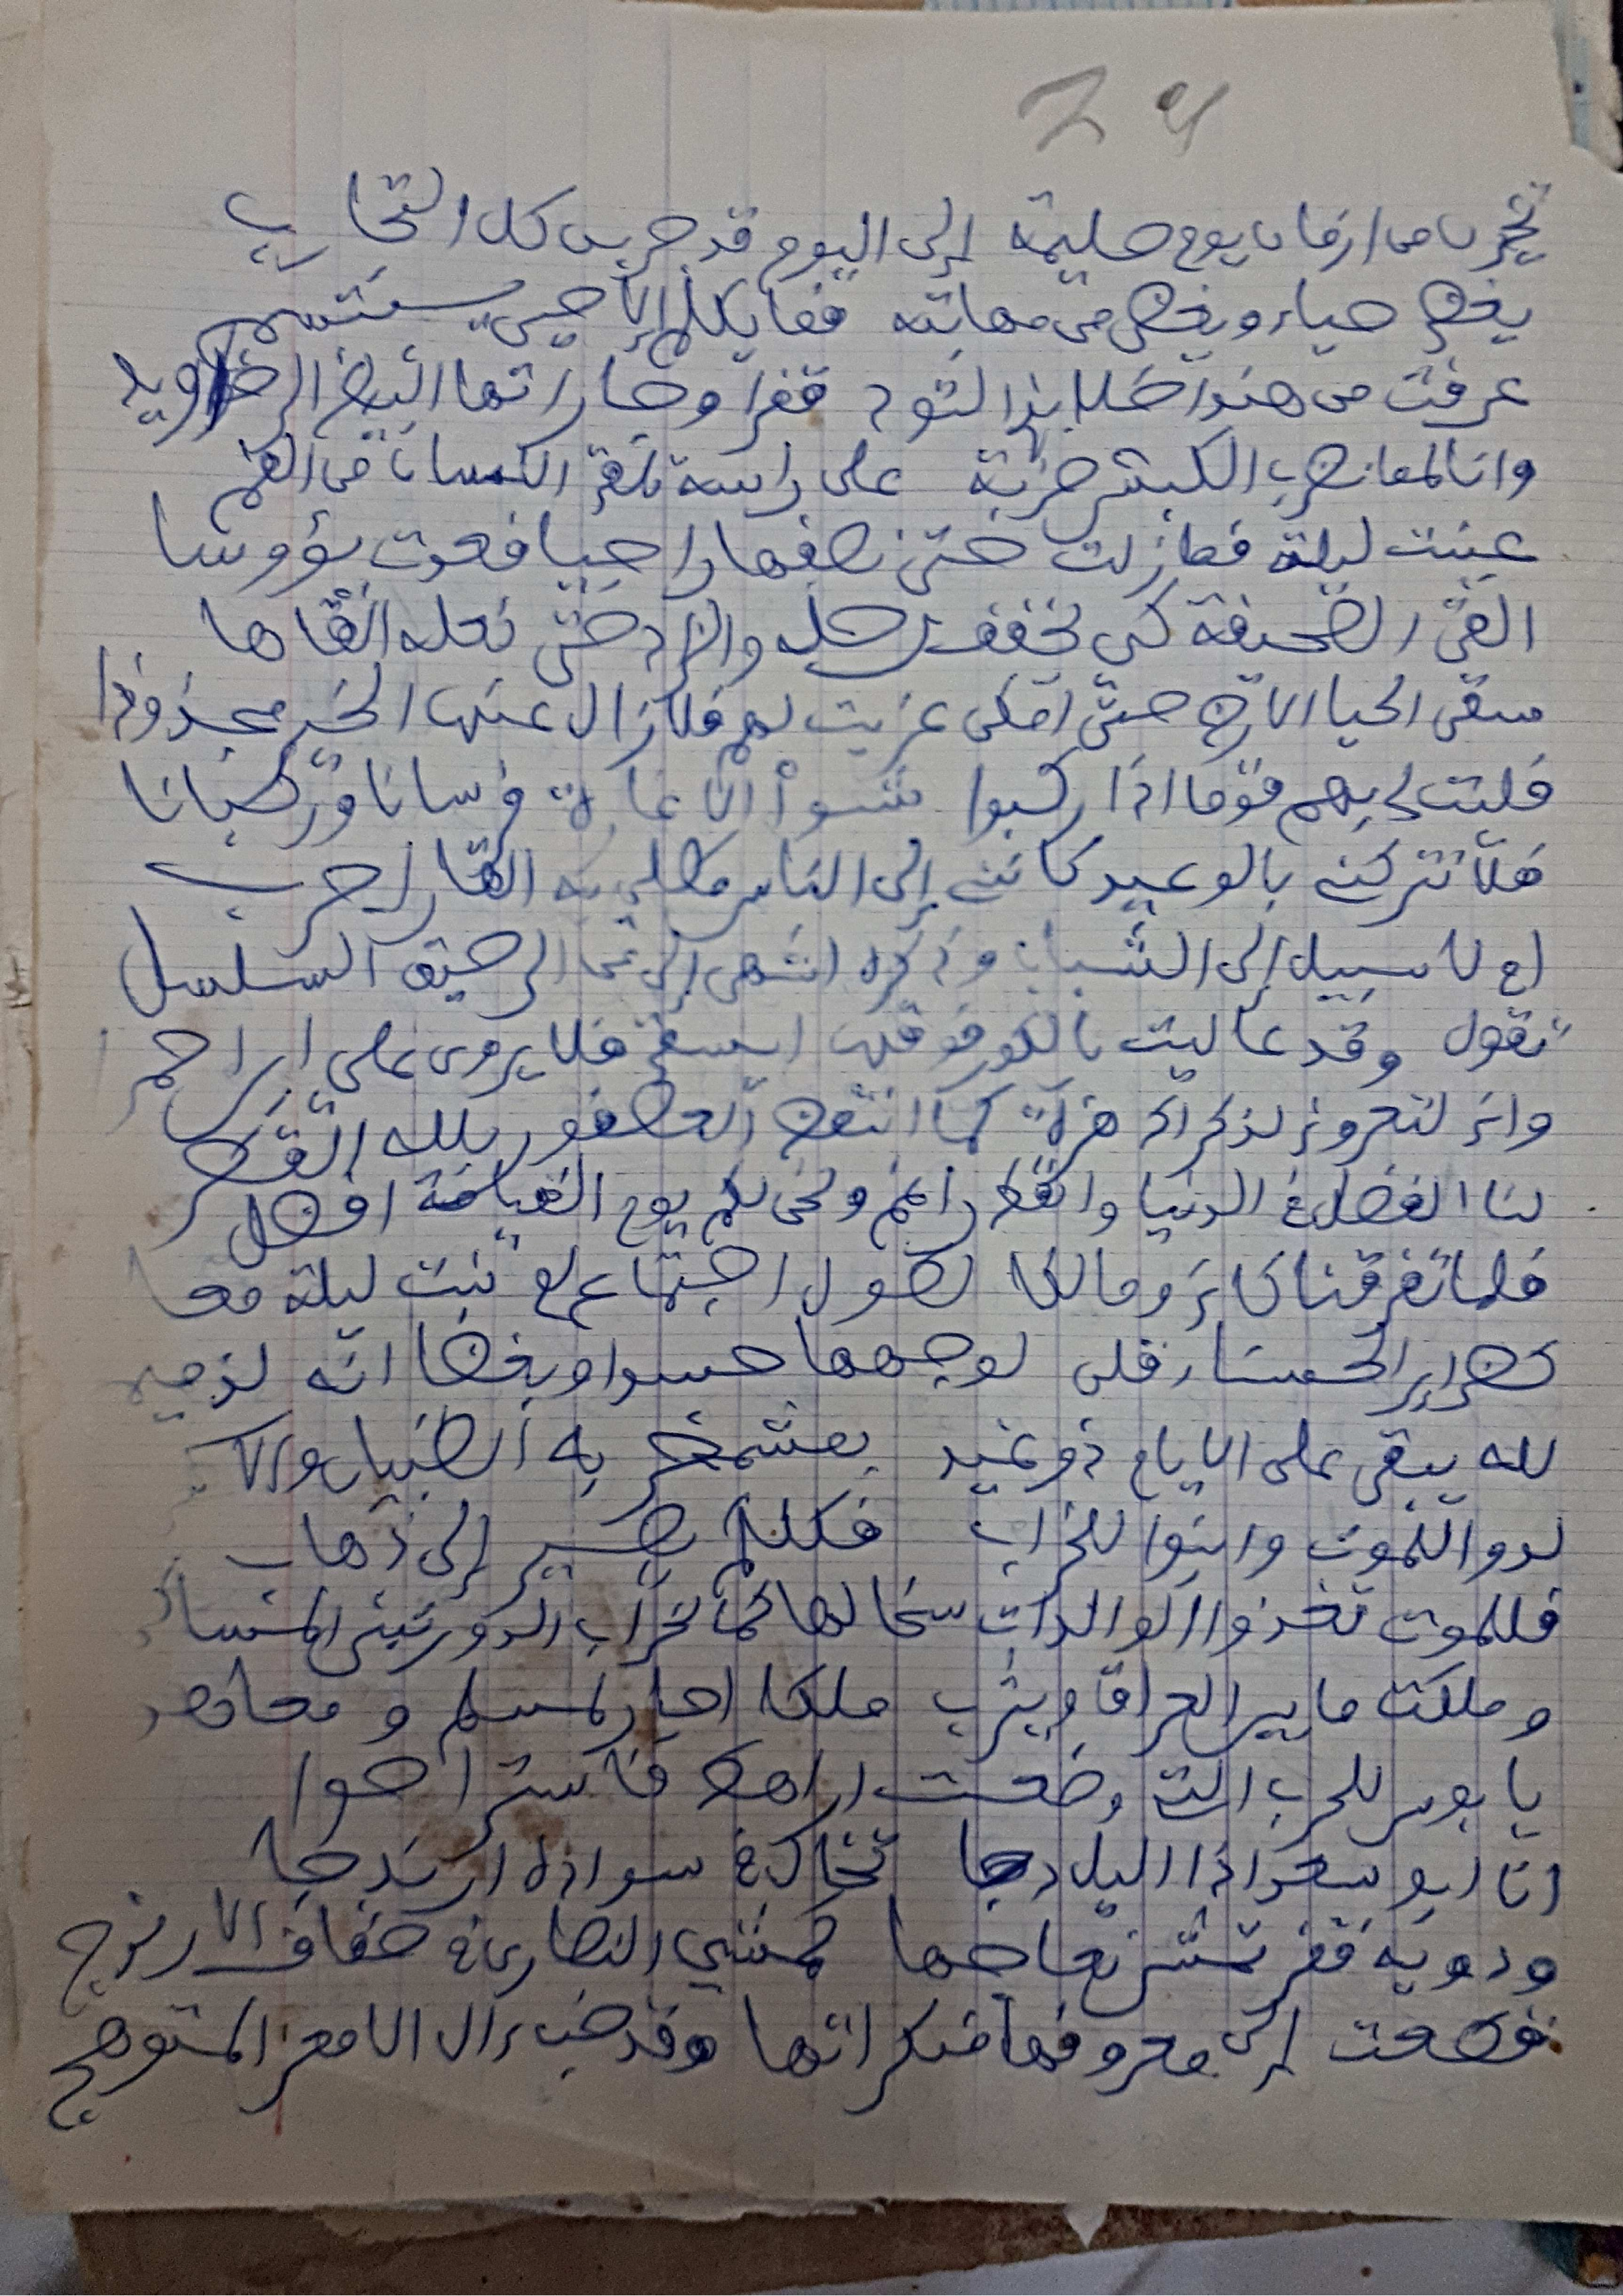 24
تخيرن من ازمان يوم حليمة إلى اليوم قد جربن كل التجارب
يغضي حياء ويغضى من مهابته فما يكلم إلا حين يبتسم
عرفت من هند اطلالا بذ التود قفرا وجاراتها البيض الرخاويد
وانا لمما نضرب الكبش ضربة على راسه تلقى اللسان من الفم
عينت ليلة فما زلت حتى نصفها راجيا فعدت يؤوسا
القى الصحيفة كى يخفف رحله والزاد حتى نعله القاها
سقى الحيا الارض حتى امكن عزيت لهم فلا زال عنها الخير مجذوذا
فليت لي بهم قوما اذا ركبوا شنوا الاغارة فرسانا وركبانا
فلا تتركني بالوعيد كانني إلى الناس مطلي به القار اجرب
ام لا سبيل إلى الشباب وذكره اشهى إلي من الرحيق السلسل
تقول وقد عاليت بالكور فوقها ايسقى فلا يروى على ابن احمرا
واني لتعروني لذكراك هزة كما انتفض العصفور بلله القطر
لنا الفضل في الدنيا وانفك راغم ونحن لكم يوم القيامة افضل
فلما تفرقنا كاني ومالكا لطول اجتماع لم نبت ليلة معا
كضراير الحسناء قلن لوجهها حسدا وبغضا انه لذميم
لله يبقى على الايام ذو حيد بمشمخر به الظيان والاس
لدوا للموت وابنوا للخراب فكلكم يصير إلى ذهاب
فللموت تغذوا الوالدات سخالها كما لخراب الدور تبنى المساكن
وملكت ما بين العراق ويثرب ملكا اجار لمسلم ومعاهد
يا بوس للحرب التي وضعت اراهط فاستراحوا
انا ابو سعد اذا الليل دجا تخال في سواده ارندجا
ودوية قفر تمشي نعاجها كمشي النصارى في خفاف الارندج
قطعت إلى معروفها منكراتها وقد خب ءال الامعز المتوهج